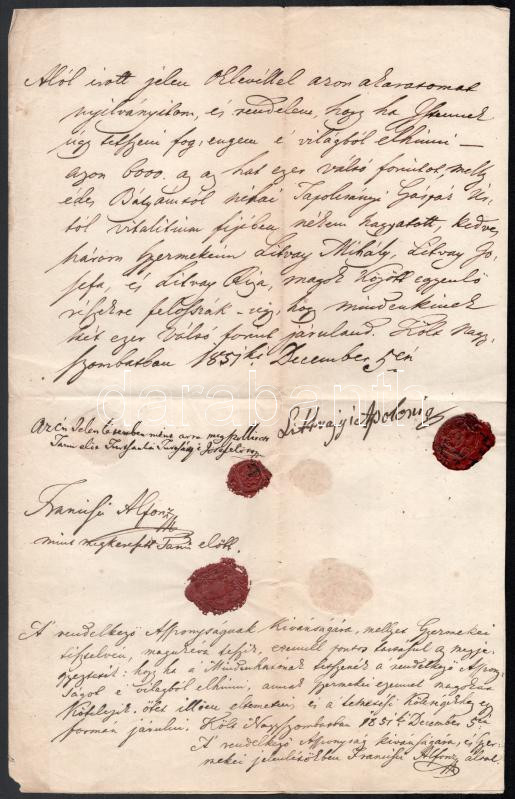 Alól irott jelen Oklevéllel azon akaratomat
nyilványitom, és rendelem, hogy ha Istennek
úgy tetszeni fog, engem é világból elhinni –
azon 6000. az az hat ezer váltó forintot, melly
édes Bátyámtól néhai Tapolcsányi Gáspár Úr-
tól vitalitium fejében nékem hagyatott, kedves
három Gyermekeim Litvay Mihály, Litvay Jo-
sefa, és Litvay Róza, magok között egyenlő
részekre feloszszák – úgy, hogy mindenkinek
két ezer Váltó forint járuland. Költ Nagy
Szombatban 1851 ki December 5én
Littvayi Apolonia
azén Jelen Létemben mint arra meg
Tanu elött
Franciscy Alfonz
mint megkeresett Tanú előtt.
A rendelkező Asszonyságnak Kivánságára, mellyet Gyermekei
magukévá teszik, ezennel pontos
hogy ha a Mindenhatónak tetszenék a rendelkező Asszony-
ságot é világból elhinni, annak Gyermekei ezennel magokat
Kötelezik, őtet illően eltemetni, és a temetési Költségekhez egy
formán járulni. Költ Nagyszombatban 1851 k December 5én
A rendelkező Asszonyság kivánságára, és Gyer-
mekei jelenlétökben Franciscy Alfonz által.
darabanth